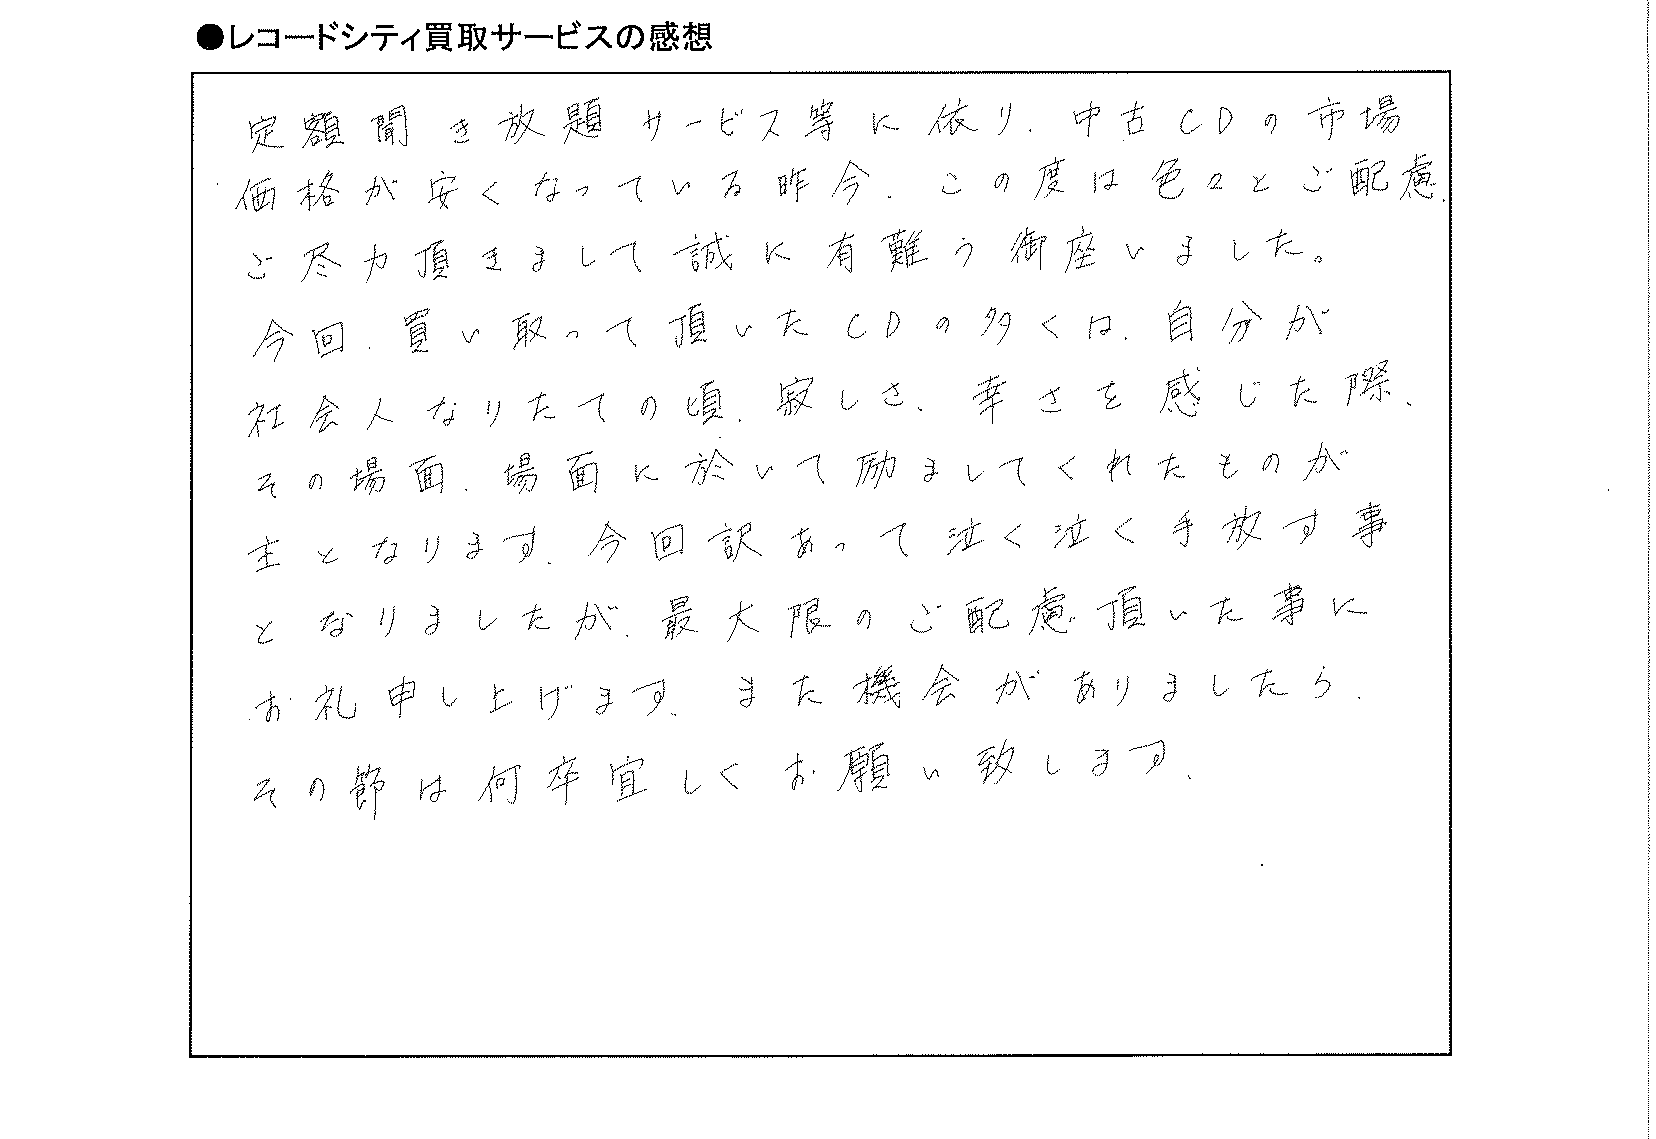 ●レコードシティ買取サービスの感想
定額聞き放題サービス等に依り、中古CDの市場
価格が安くなっている昨今、この度は色々とご配慮、
ご尽力頂きまして誠に有難う御座いました。
今回、買い取って頂いたCDの多くは、自分が
社会人なりたての頃、寂しさ、幸さを感じた際、
その場面、場面に於いて励ましてくれたものが
主となります。今回訳あって泣く泣く手放す事
となりましたが、最大限のご配慮頂いた事に
お礼申し上げます。また機会がありましたら、
その節は何卒宜しくお願い致します。